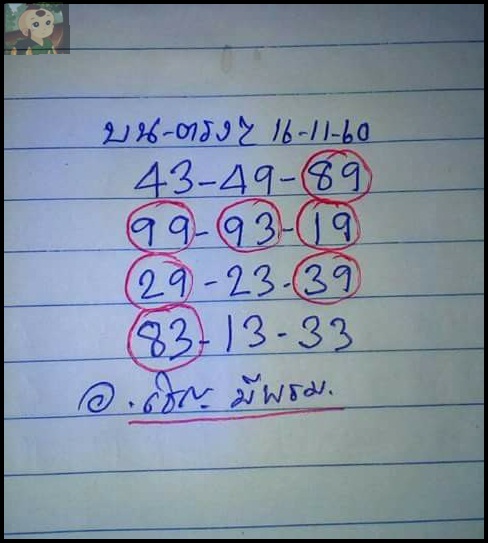 บน-ตรงๆ 16-11-60
43-49-89
99-93-19
29-23-39
83-13-33
อ. มีพรม.